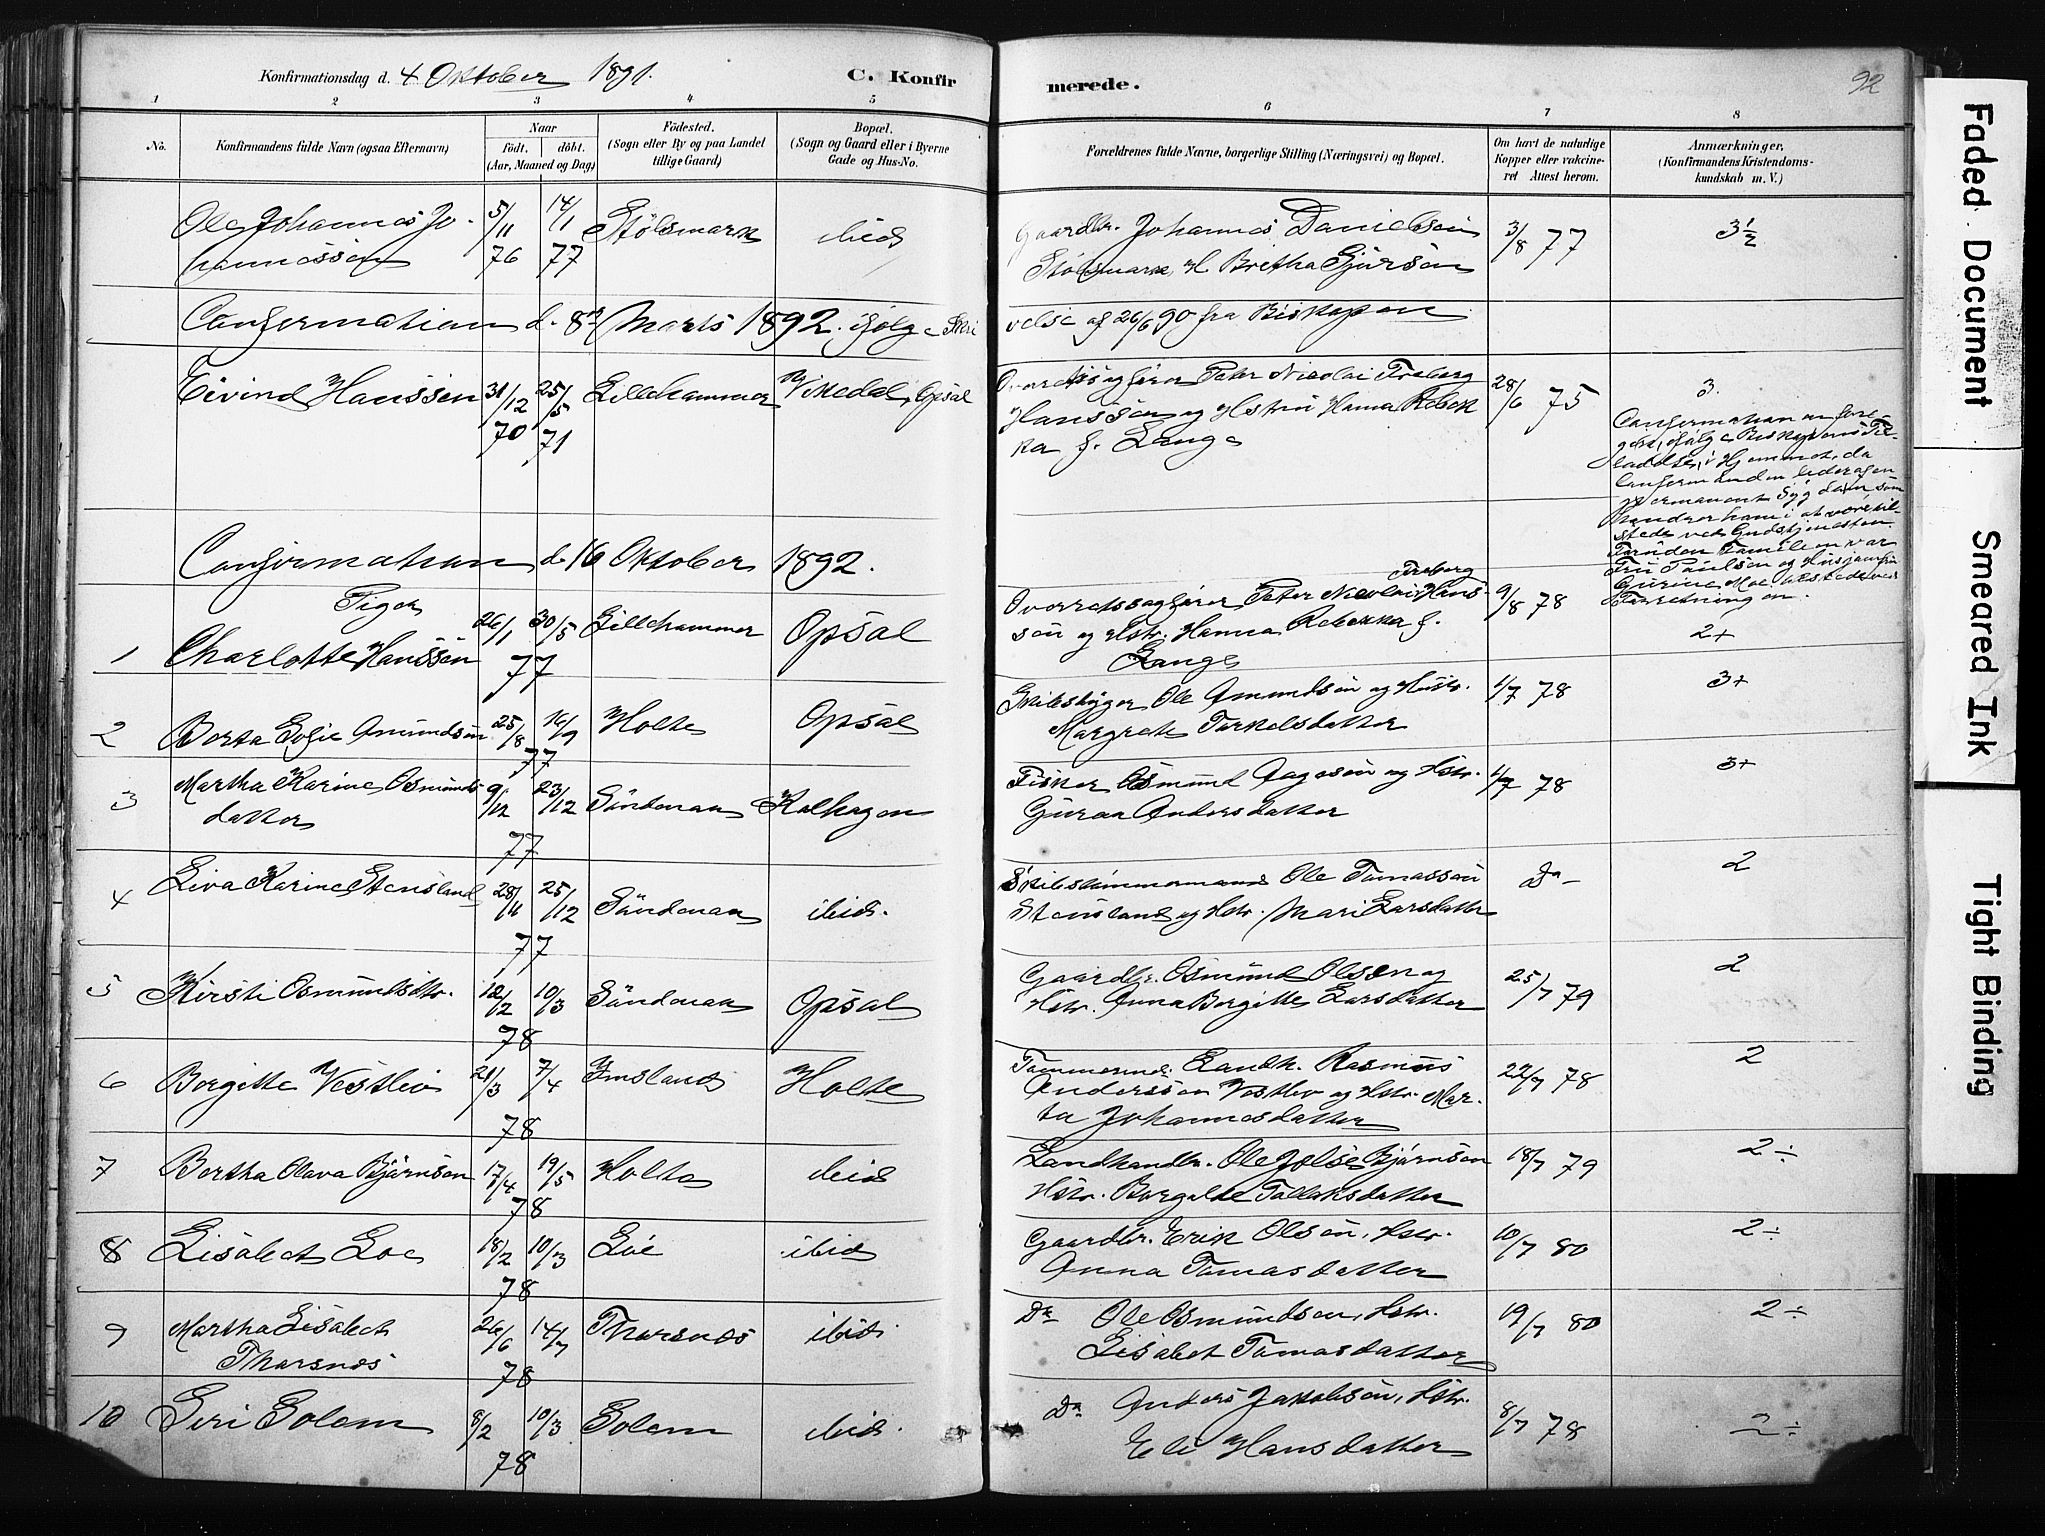 Konfirmationsdag d. 4 Oktober 1891.
C. Konfirmerede.
92
1 2 3 4 5 6 7 8
No.
Konfirmandens fulde Navn (ogsaa Efternavn)
Naar
født. døbt.
(Aar, Maaned og Dag)
Födested.
(Sogn eller By og paa Landet
tillige Gaard)
Bopæl.
(Sogn og Gaard eller i Byerne
Gade og Hus-No.
Forældrenes fulde Navne, borgerlige Stilling (Næringsvei) og Bopæl.
Om havt de naturlige
Kopper eller vakcine-
ret Attest herom.
Anmærkninger,
(Konfirmandens Kristendoms-
kundskab m. V.)
Ole Johannes Jo-
hannessen
5/11 76
14/1 77
Stölsmark
ibid
Gaardbr. Johannes Danielsen
Stölsmark, H Bretha Gjürsen
3/8 77
3½
Confirmation d. 8de Marts 1892. ifølge Skri
velse af 26/6 90 fra Biskopen
Eivind Hanssen
31/12 70
25/5 71
Lillehammer
Vikedal, Opsal
Overretssagfører Peter Nicolai Freberg
Hanssen og Hstru Hanna Rebek
ka f. Lange
28/6 75
3.
Confirmationen fore
gik, ifølge Biskopens Til-
ladelse, i Hjemmet, da
Confirmanden lider af en
permanent Sygdom som
hindrer ham i at være til-
stede ved Gudstjenesten.
Foruden Familien var
Fru Paulsen og Husjomfru
Gurine Moe tilstede ved
Forretningen.
Confirmation d. 16 Oktober 1892.
Piger
1 Charlotte Hanssen
26/1 30/5
77
Lillehammer
Opsal
Overretssagfører Peter Nicolai Freberg Hans-
sen og Hstr. Hanna Rebekka f.
Lange
9/8 78
2+
2 Berta Sofie Amundsen
25/8 16/9
77
Holte
Opsal
Skibsbygger Ole Amundsen og Hustr.
Margrete Torkelsdatter
1/7 78
3+
3 Martha Karine Osmunds-
datter
9/12 23/12
77
Söndenaa
Kalhagen
Fisker Osmund Aagesen og Hstr.
Guroa Andersdatter
1/7 78
3+
4 Liva Karine Stensland
28/11 25/12
77
Söndenaa
ibid.
Skibstømmermand Ole Tomassen
Stensland og Hstr. Mari Larsdatter
Do
2
5 Kirsti Osmundsdtr.
12/2 10/3
78
Söndenaa
Opsal
Gaardbr. Osmund Olsen og
Hstr. Anna Bergitte Larsdatter
25/7 79
2
6 Bergitte Vestlev
21/3 7/4
78
Imsland
Holte
Tømmermd. Landh. Rasmus
Anderssen Vestlev og Hstr. Mar-
ta Johannesdatter
22/7 78
2
7 Bertha Olava Bjørnsen
17/4 19/5
78
Holte
ibid
Landhandlr. Ole Jelse Bjørnsen
Hstr. Borgelde Tollaksdatter
18/7 79
2 ÷
8 Lisabet Loe
18/2 10/3
78
Loe
ibid
Gaardbr. Erik Olsen, Hstr.
Anna Tomasdatter
10/7 80
2 ÷
9 Martha Lisabet
Thorsnes
26/6 14/7
78
Thorsnes
ibid
Do Ole Osmundsen, Hstr.
Lisabet Tomasdatter
19/7 80
2 ÷
10 Siri Solem
8/2 10/3
78
Solem
ibid.
Do Anders Jakobsen, Hstr.
Eli Hansdatter
8/7 78
2 ÷
Faded Document
Smeared Ink
Tight Binding